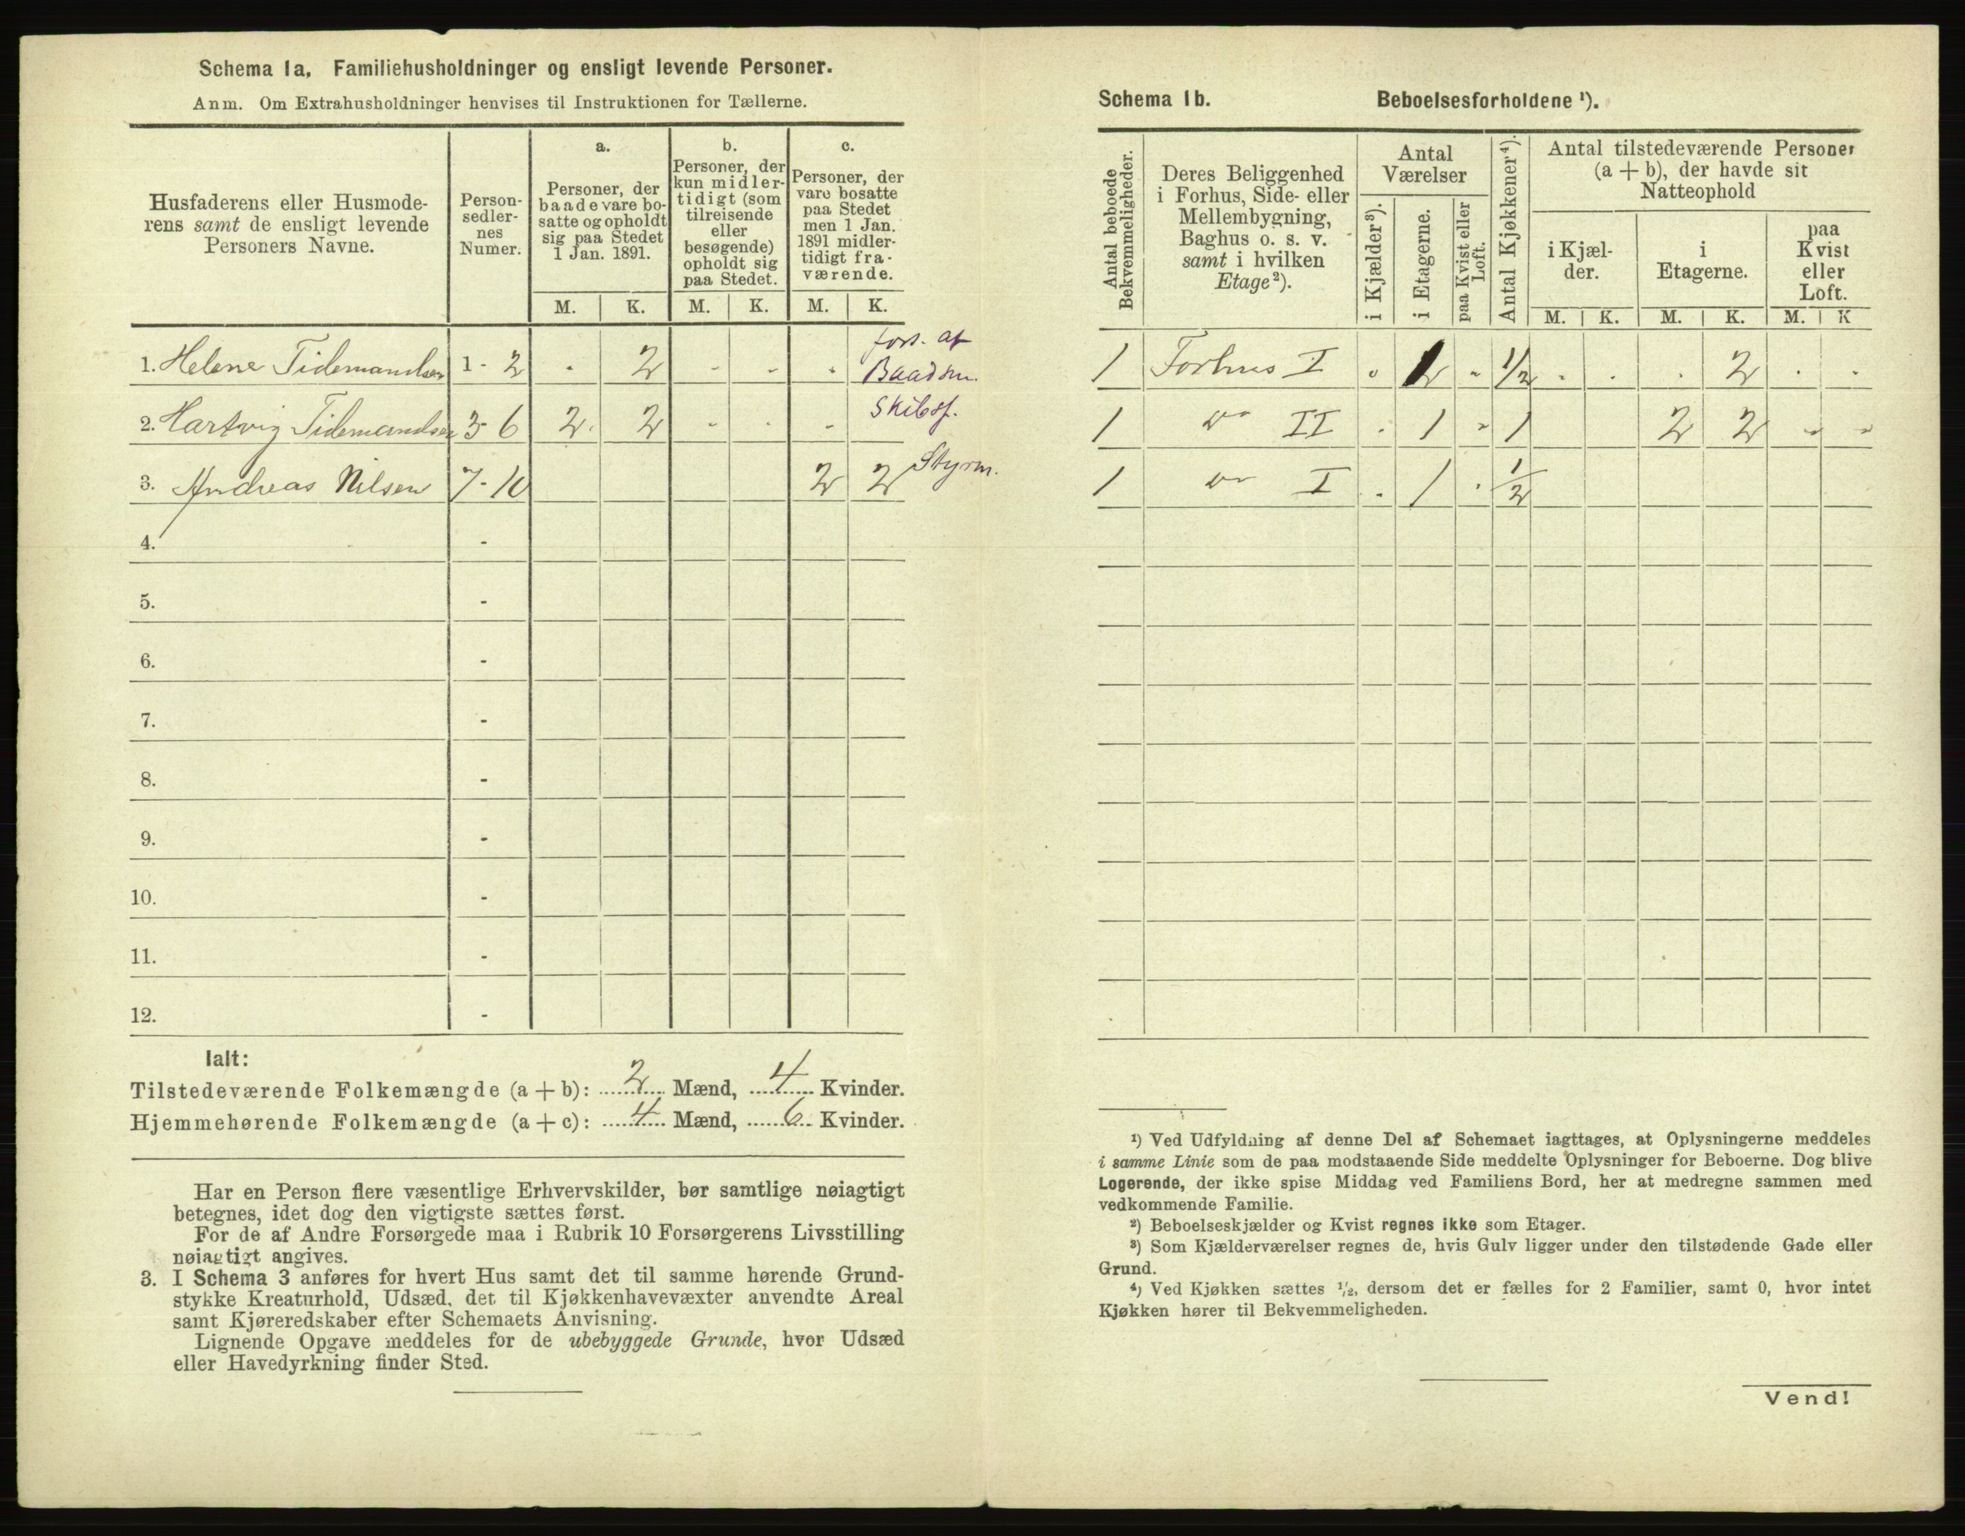 Schema 1a. Familiehusholdninger og ensligt levende Personer.
Anm. Om Extrahusholdninger henvises til Instruktionen for Tællerne.
Husfaderens eller Husmode-
rens samt de ensligt levende
Personers Navne.
Person-
sedler-
nes
Numer.
a.
Personer, der
baade vare bo-
satte og opholdt
sig paa Stedet
1 Jan. 1891.
b.
Personer, der
kun midler-
tidigt (som
tilreisende
eller
besøgende)
opholdt sig
paa Stedet.
c.
Personer, der
vare bosatte
paa Stedet
men 1 Jan.
1891 midler-
tidigt fra-
værende.
M. K. M. K. M. K.
1. Helene Tidemandsen 1 - 2 - 2 - - - fors. af Baadsm.
2. Hartvig Tidemandsen 3-6 2. 2 - - - Skibsf.
3. Andreas Nilsen 7-10 2 2 Styrm.
4. -
5. -
6. -
7. -
8. -
9. -
10. -
11. -
12. -
Ialt:
Tilstedeværende Folkemængde (a + b): 2 Mænd, 4 Kvinder.
Hjemmehørende Folkemængde (a + c): 4 Mænd, 6 Kvinder.
Har en Person flere væsentlige Erhvervskilder, bør samtlige nøiagtigt
betegnes, idet dog den vigtigste sættes først.
For de af Andre Forsørgede maa i Rubrik 10 Forsørgerens Livsstilling
nøiagtigt angives.
3. I Schema 3 anføres for hvert Hus samt det til samme hørende Grund-
stykke Kreaturhold, Udsæd, det til Kjøkkenhavevæxter anvendte Areal
samt Kjøreredskaber efter Schemaets Anvisning.
Lignende Opgave meddeles for de ubebyggede Grunde, hvor Udsæd
eller Havedyrkning finder Sted.
Schema 1b. Beboelsesforholdene ¹).
Antal beboede
Bekvemmeligheder.
Deres Beliggenhed
i Forhus, Side- eller
Mellembygning,
Baghus o. s. v.
samt i hvilken
Etage²).
Antal
Værelser
i Kjælder³).
i Etagerne.
paa Kvist eller
Loft.
Antal Kjøkkener⁴).
Antal tilstedeværende Personer
(a + b), der havde sit
Natteophold
i Kjæl-
der.
i
Etagerne.
paa
Kvist
eller
Loft.
M. K. M. K. M. K
1 Forhus I 2 - 1/2 . . . 2 . .
1 do II . 1 - 1 2 2 - -
1 do I . 1 . 1/2
¹) Ved Udfyldning af denne Del af Schemaet iagttages, at Oplysningerne meddeles
i samme Linie som de paa modstaaende Side meddelte Oplysninger for Beboerne. Dog blive
Logerende, der ikke spise Middag ved Familiens Bord, her at medregne sammen med
vedkommende Familie.
²) Beboelseskjælder og Kvist regnes ikke som Etager.
³) Som Kjælderværelser regnes de, hvis Gulv ligger under den tilstødende Gade eller
Grund.
⁴) Ved Kjøkken sættes ¹/₂, dersom det er fælles for 2 Familier, samt 0, hvor intet
Kjøkken hører til Bekvemmeligheden.
Vend!